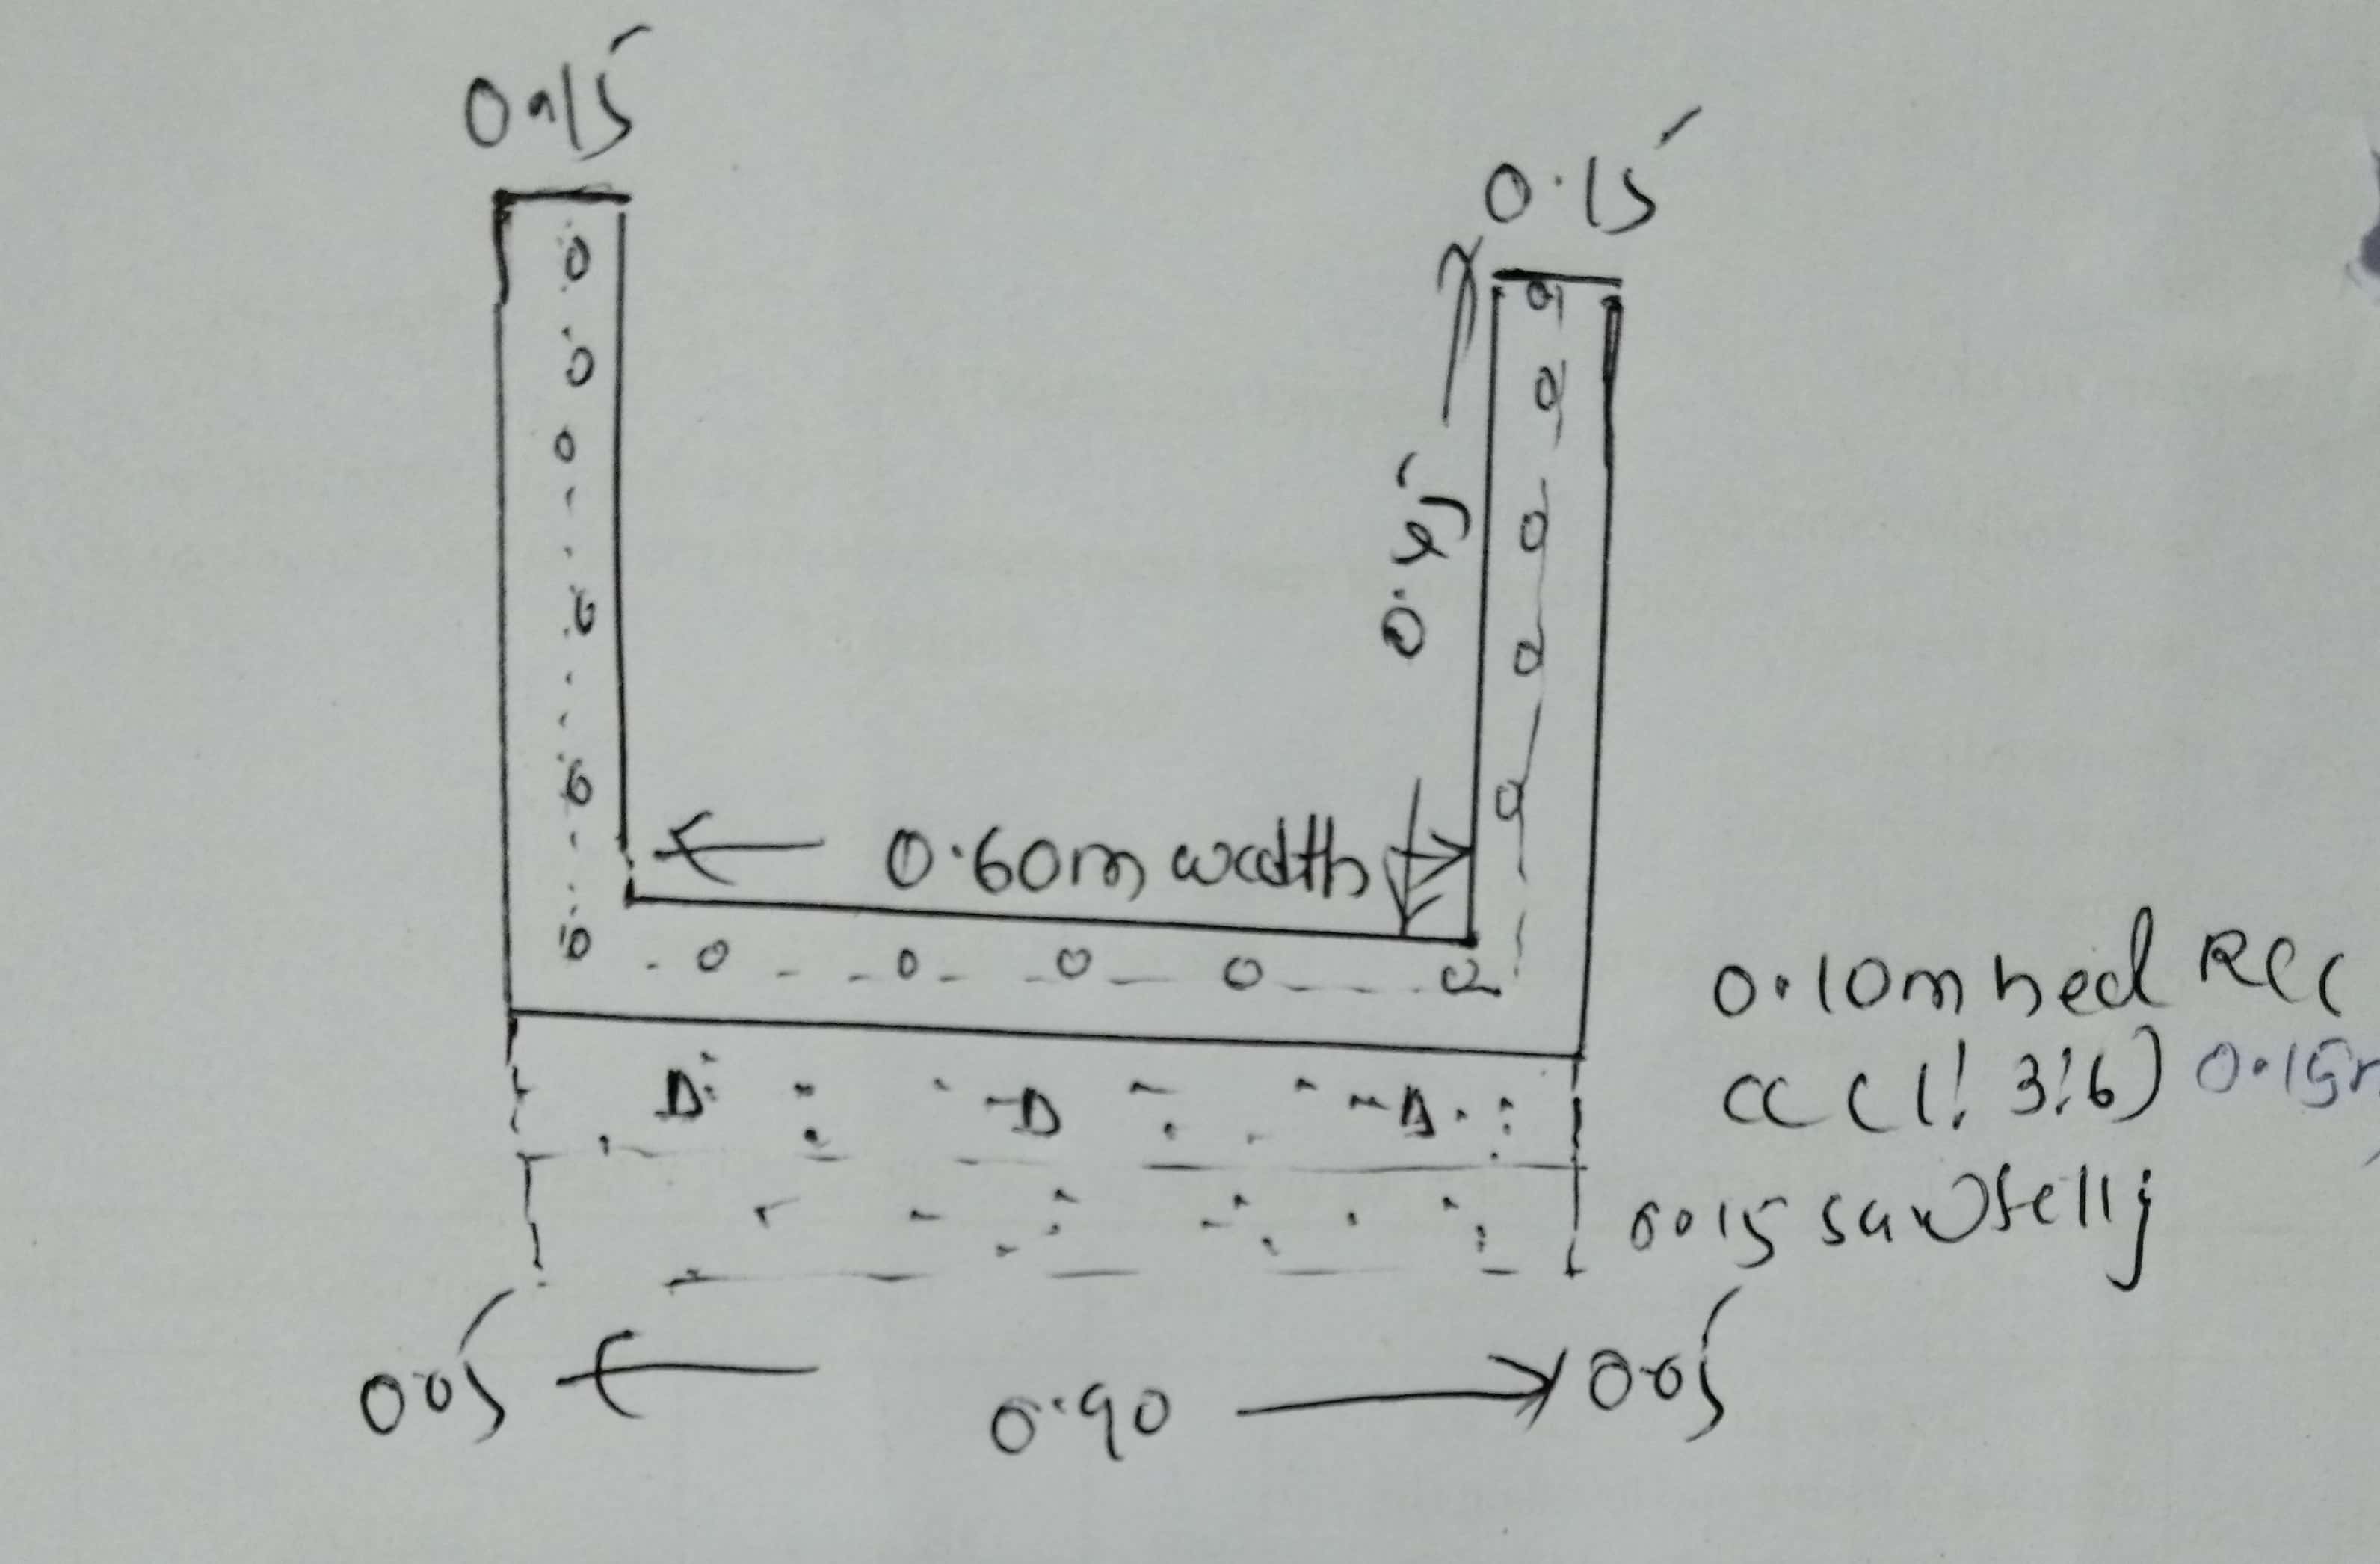 0.15
0.15
0.45
0.60m width
0.10m bed RCC
CC (1:3:6) 0.15m
0.15 sand filling
0.05
0.90
0.05